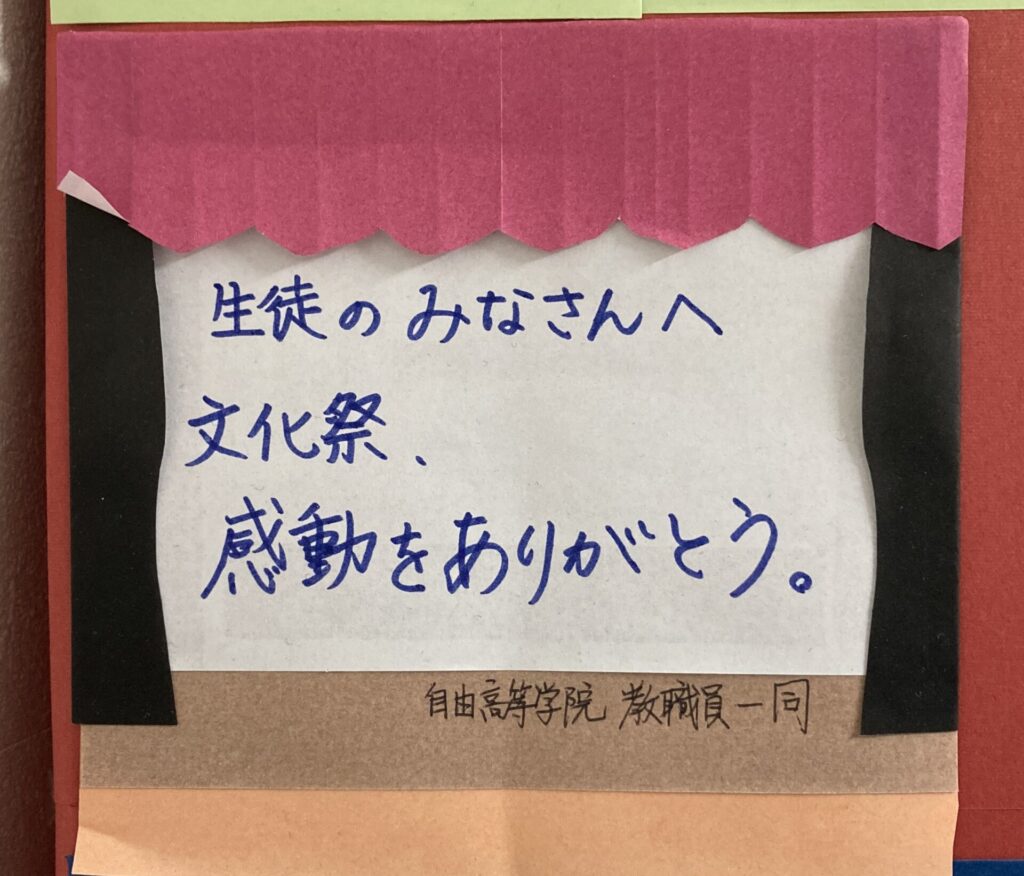 生徒のみなさんへ
文化祭、
感動をありがとう。
自由高等学院 教職員一同